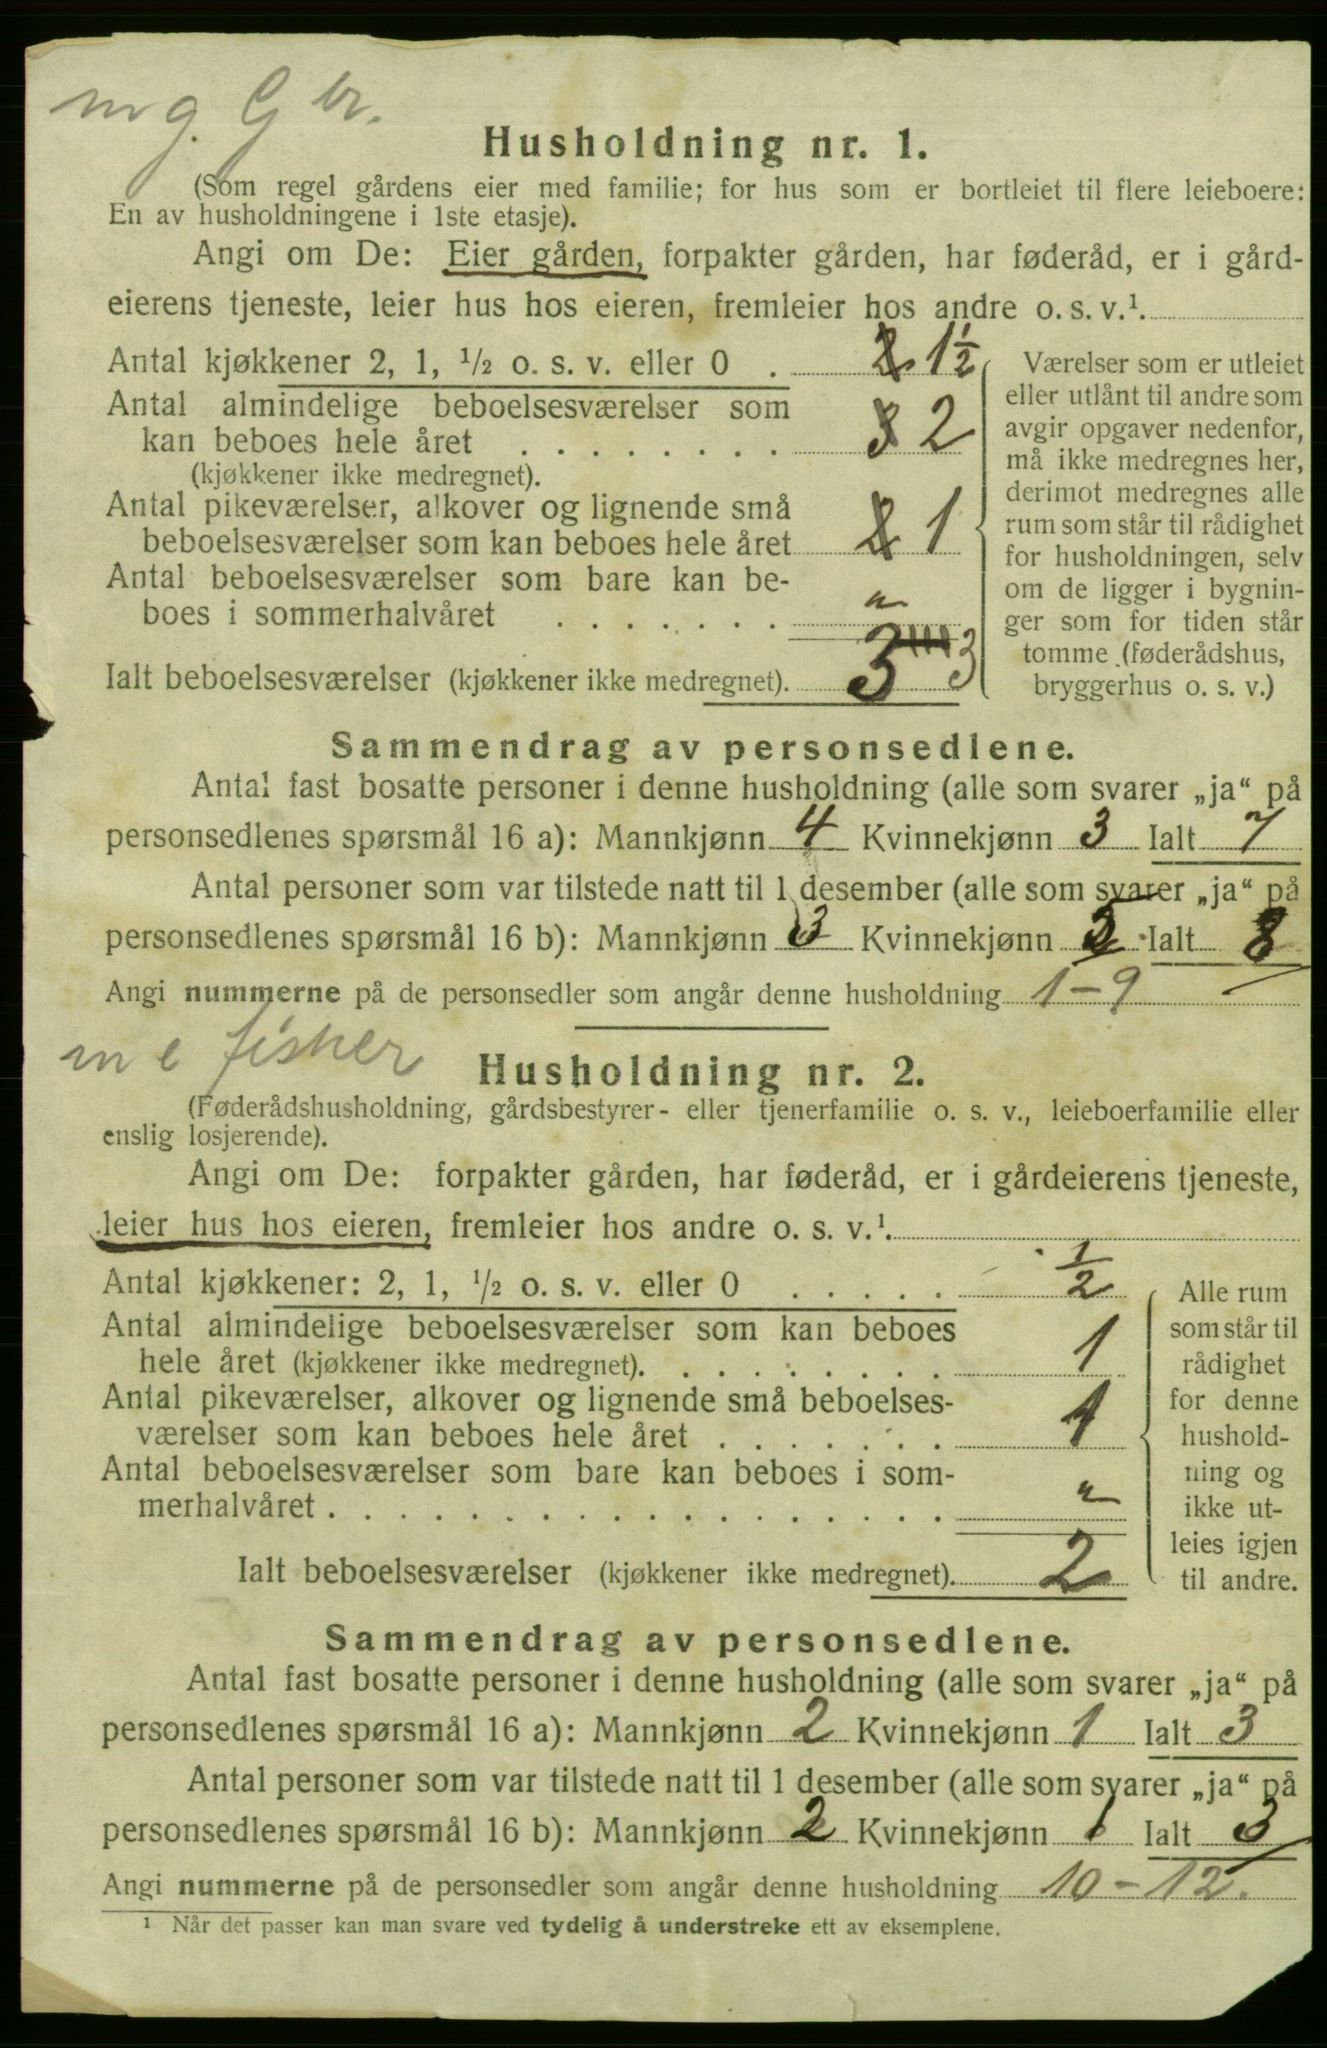 m g. G br.
Husholdning nr. 1.
(Som regel gårdens eier med familie; for hus som er bortleiet til flere leieboere:
En av husholdningene i 1ste etasje).
Angi om De: Eier gården, forpakter gården, har føderåd, er i gård-
eierens tjeneste, leier hus hos eieren, fremleier hos andre o. s. v.¹.
Antal kjøkkener 2, 1, ½ o. s. v. eller 0 . 2 1½
Antal almindelige beboelsesværelser som
kan beboes hele året . . . . . . . . 3 2
(kjøkkener ikke medregnet).
Antal pikeværelser, alkover og lignende små
beboelsesværelser som kan beboes hele året 2 1
Antal beboelsesværelser som bare kan be-
boes i sommerhalvåret . . . . . . . "
Ialt beboelsesværelser (kjøkkener ikke medregnet). 3 3
Værelser som er utleiet
eller utlånt til andre som
avgir opgaver nedenfor,
må ikke medregnes her,
derimot medregnes alle
rum som står til rådighet
for husholdningen, selv
om de ligger i bygnin-
ger som for tiden står
tomme (føderådshus,
bryggerhus o. s. v.)
Sammendrag av personsedlene.
Antal fast bosatte personer i denne husholdning (alle som svarer „ja“ på
personsedlenes spørsmål 16 a): Mannkjønn 4 Kvinnekjønn 3 Ialt 7
Antal personer som var tilstede natt til 1 desember (alle som svarer „ja“ på
personsedlenes spørsmål 16 b): Mannkjønn 3 Kvinnekjønn 5 Ialt 8
Angi nummerne på de personsedler som angår denne husholdning 1-9
m e fisker
Husholdning nr. 2.
(Føderådshusholdning, gårdsbestyrer- eller tjenerfamilie o. s. v., leieboerfamilie eller
enslig losjerende).
Angi om De: forpakter gården, har føderåd, er i gårdeierens tjeneste,
leier hus hos eieren, fremleier hos andre o. s. v.¹.
Antal kjøkkener: 2, 1, ½ o. s. v. eller 0 . . . . . ½
Antal almindelige beboelsesværelser som kan beboes
hele året (kjøkkener ikke medregnet). . . . . . . . . 1
Antal pikeværelser, alkover og lignende små beboelses-
værelser som kan beboes hele året . . . . . . . 1
Antal beboelsesværelser som bare kan beboes i som-
merhalvåret . . . . . . . . . . . . . . . . "
Ialt beboelsesværelser (kjøkkener ikke medregnet). 2
Alle rum
som står til
rådighet
for denne
hushold-
ning og
ikke ut-
leies igjen
til andre.
Sammendrag av personsedlene.
Antal fast bosatte personer i denne husholdning (alle som svarer „ja“ på
personsedlenes spørsmål 16 a): Mannkjønn 2 Kvinnekjønn 1 Ialt 3
Antal personer som var tilstede natt til 1 desember (alle som svarer „ja“ på
personsedlenes spørsmål 16 b): Mannkjønn 2 Kvinnekjønn 1 Ialt 3
Angi nummerne på de personsedler som angår denne husholdning 10-12.
¹ Når det passer kan man svare ved tydelig å understreke ett av eksemplene.